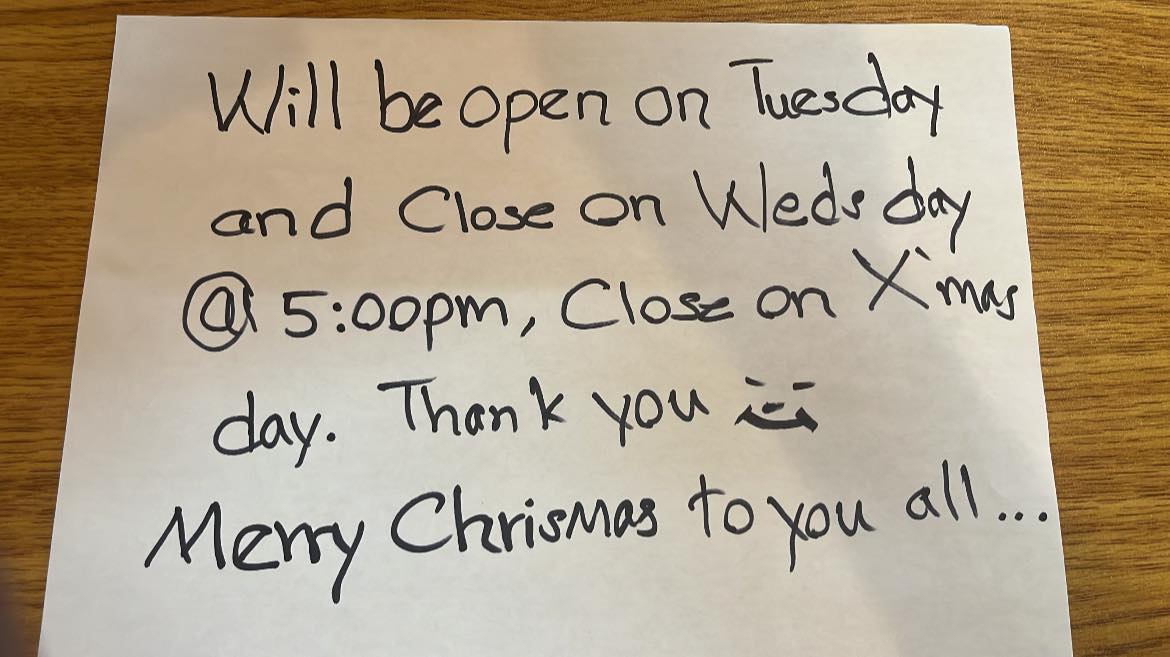 Will be open on Tuesday
and Close on Wedsday
@ 5:00pm, Close on X'mas
day. Thank you
Merry Chrismas to you all...